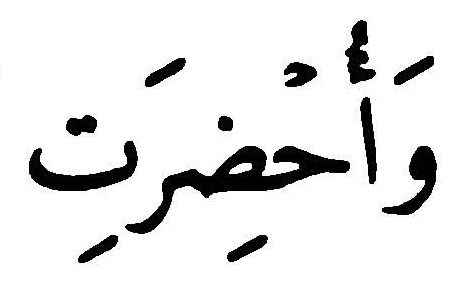 وَأُحْضِرَتِ